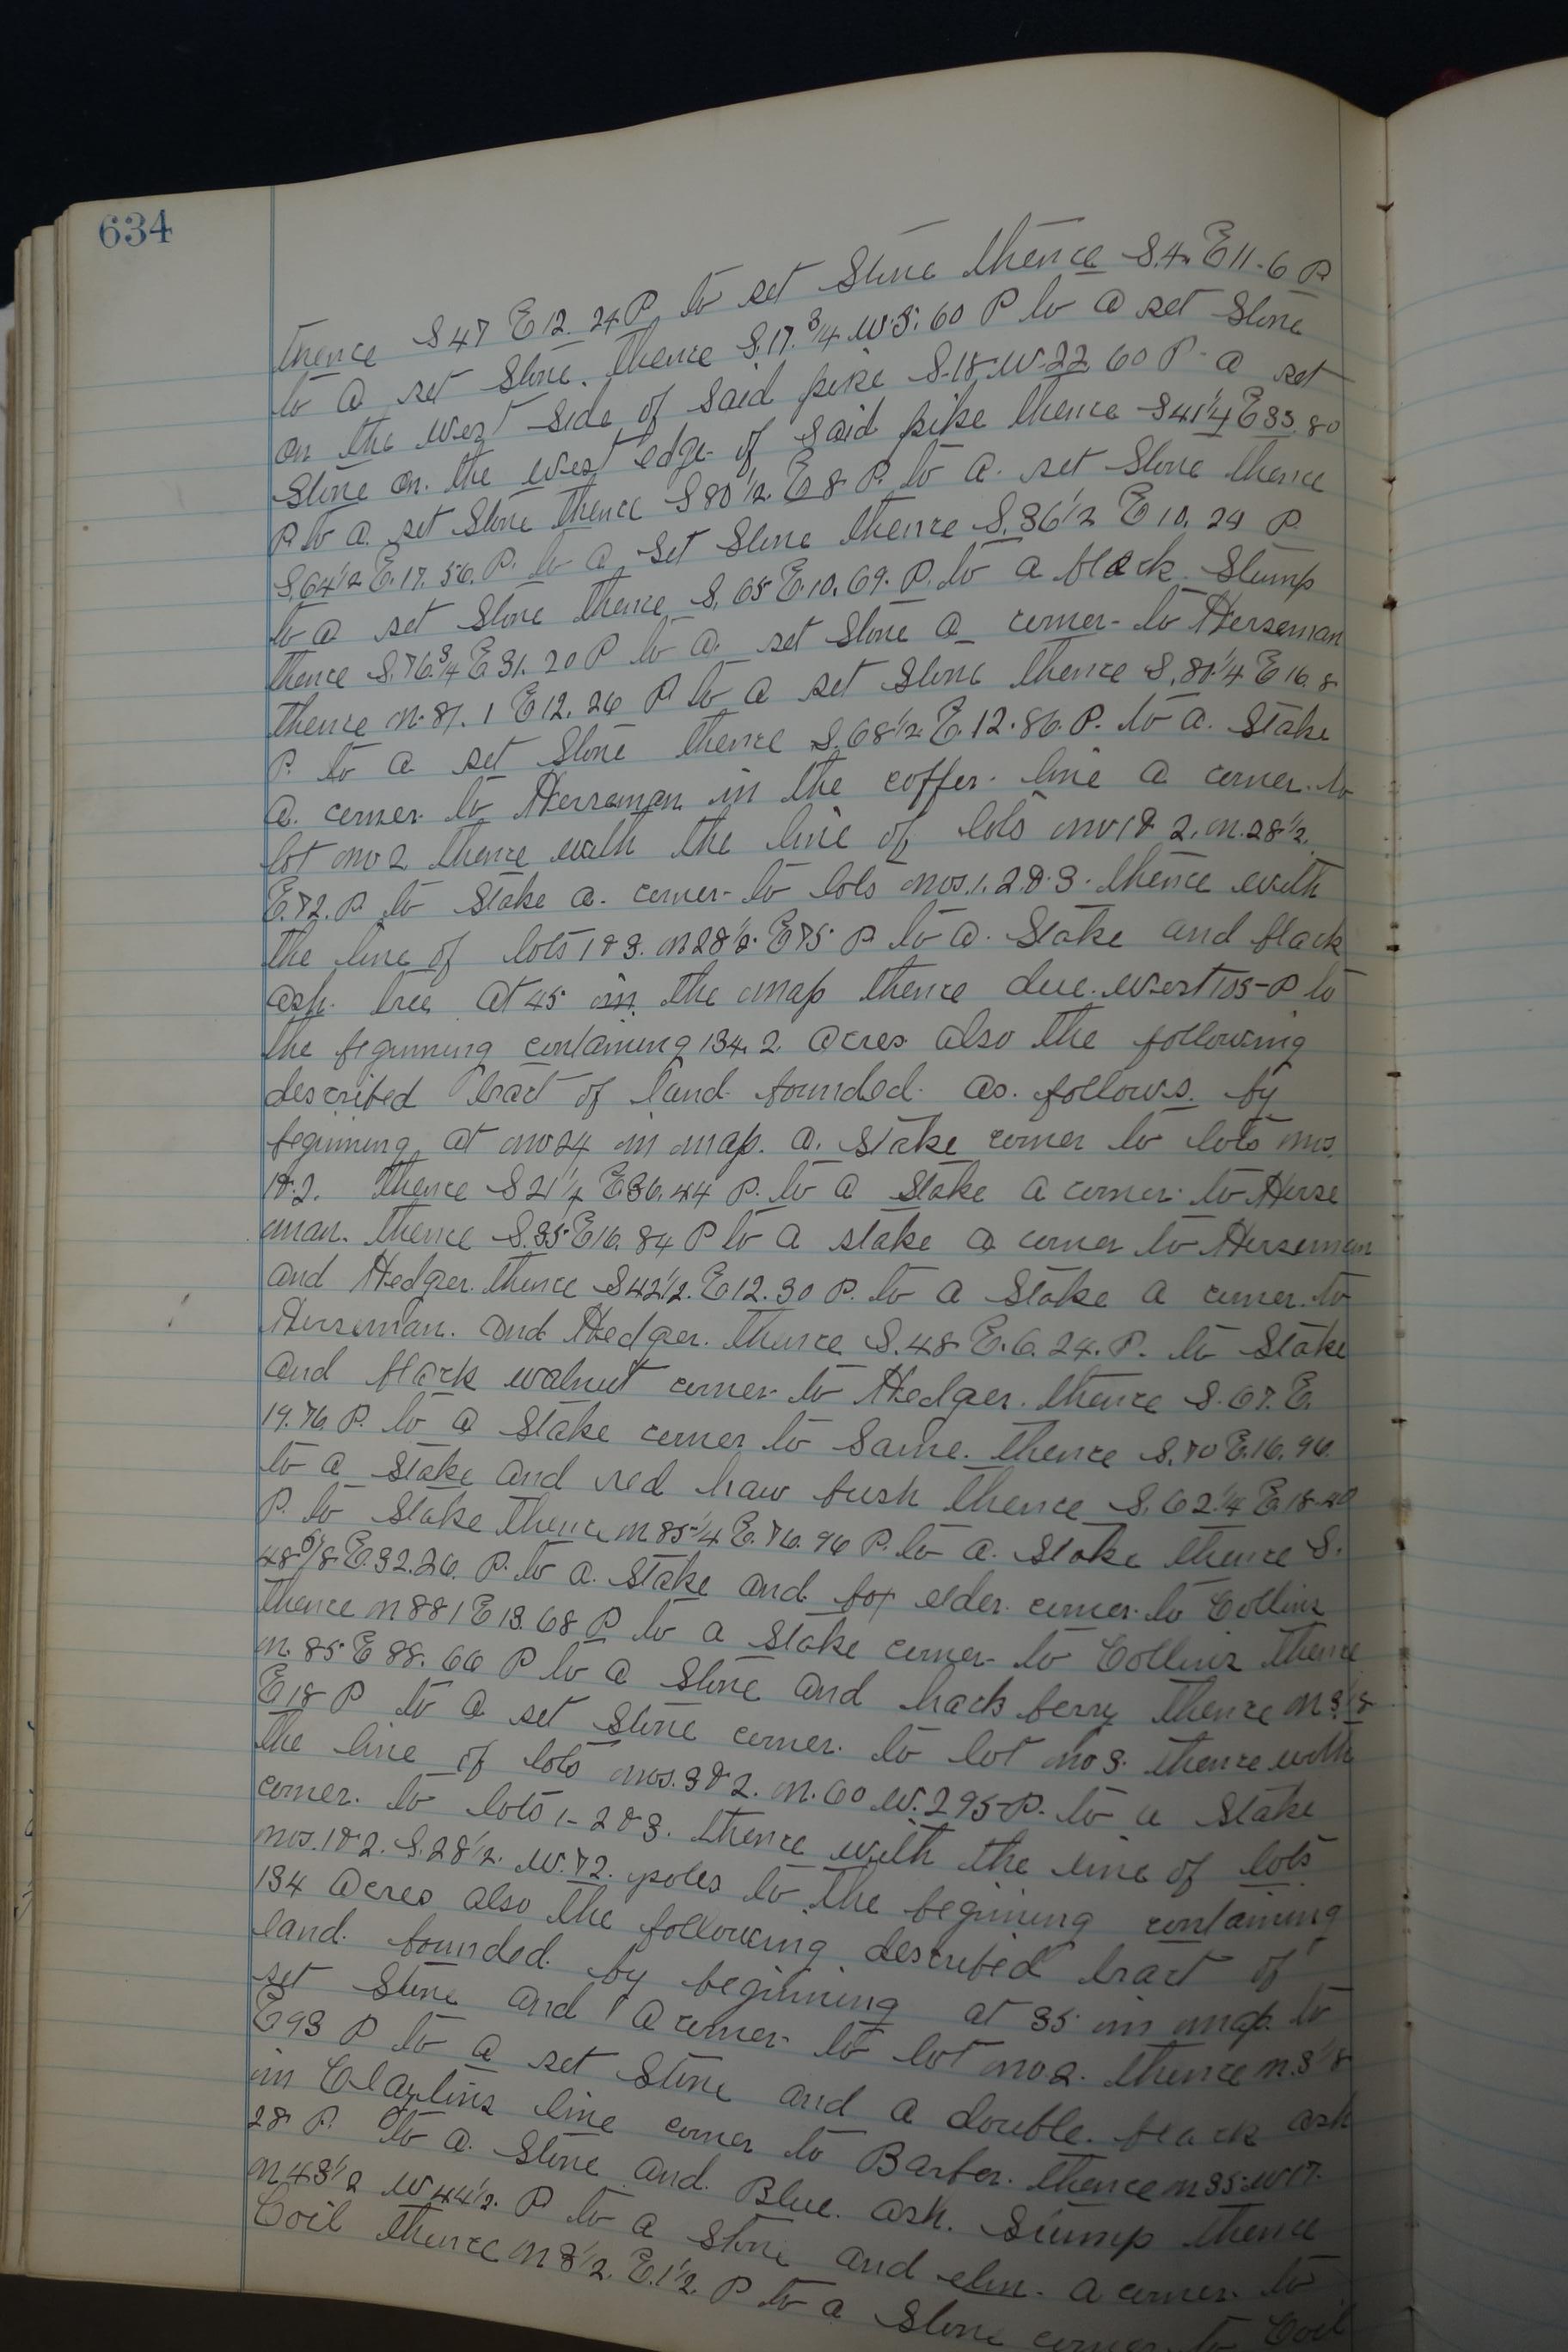 634
thence S 47 E 12. 24 P. to set Stone thence S. 4. E 11-6 P
to a set Stone. thence S. 17. 3/4 W. 5. 60 P to a set Stone
on the west side of Said pike S-18-W-22 60 P- a set
Stone on. the west edge. of Said pike thence S 41 1/4 E 33. 80
P to a. set Stone thence S 80 1/2. E 8 P. to a. set Stone thence
S. 64 1/2 E. 17. 56. P. to a set Stone thence S. 36 1/2 E 10. 24 P.
to a set Stone thence S. 65 E. 10. 69. P. to a black Stump
thence S. 76. 3/4 E 31. 20 P to a. set Stone a corner- to Herseman
thence N. 87. 1 E 12. 26 P to a set Stone thence S. 80. 1/4 E 16. 8
P. to a set Stone thence S. 68 1/2. E. 12. 86. P. to a. Stake
a. corner to Herseman in the coffer- line a corner. to
lot no 2 thence with the line of lots no 1 & 2. N. 28 1/2.
E. 72. P. to Stake a. corner- to lots nos. 1. 2. & 3. thence with
the line of lots 1 & 3. N 28 1/2. E 75 P. to a. Stake and black
ash. tree at 45 in the map thence due. west 105-P to
the beginning containing 134. 2. acres also the following
described tract of land bounded. as. follows. by
beginning at no 24 in map. a. stake corner to lots nos.
1 & 2. thence S 21 1/4 E 36. 44 P. to a Stake a corner to Herse
man. thence S. 35 E 16. 84 P to a stake a corner to Herseman
and Hedger. thence S 42 1/2. E 12. 30 P. to a Stake a corner. to
Herseman. and Hedger. thence S. 48 E. 6. 24. P. to Stake
and black walnut corner to Hedger. thence S. 67. E.
19. 76 P. to a Stake corner to Same. thence S. 70 E. 16. 96.
to a Stake and red haw bush thence S. 62 1/4 E 18-40
P. to Stake thence N 85 1/4 E. 76. 96 P. to a. Stake thence S.
48 5/8 E. 32. 26. P. to a. Stake and box elder. corner. to Collins
thence N 88 1 E 13. 68 P to a Stake corner- to Collins thence
N. 85 E 88. 66 P to a Stone and hack berry thence N 3 1/8
E 18 P to a set Stone corner. to lot no 3. thence with
the line of lots nos. 3 & 2. N. 60 W. 295-P. to a Stake
corner. to lots 1- 2 & 3. thence with the line of lots
nos. 1 & 2. S. 28 1/2. W. 72. poles to the begining containing
134 acres also the following described tract of
land. bounded. by beginning at 35 in map. to
set Stone and a corner- to lot no 2. thence N. 3 1/8
E 93 P to a set Stone and a double. black ash
in line corner to Barber. thence N 35 W 17.
28 P. to a. Stone and. Blue. ash. Stump thence
N 43 1/2 W 44 1/2. P to a Stone and elm. a corner. to
Coil thence N 3 1/2. E. 1 1/2. P to a Stone corner to Coil